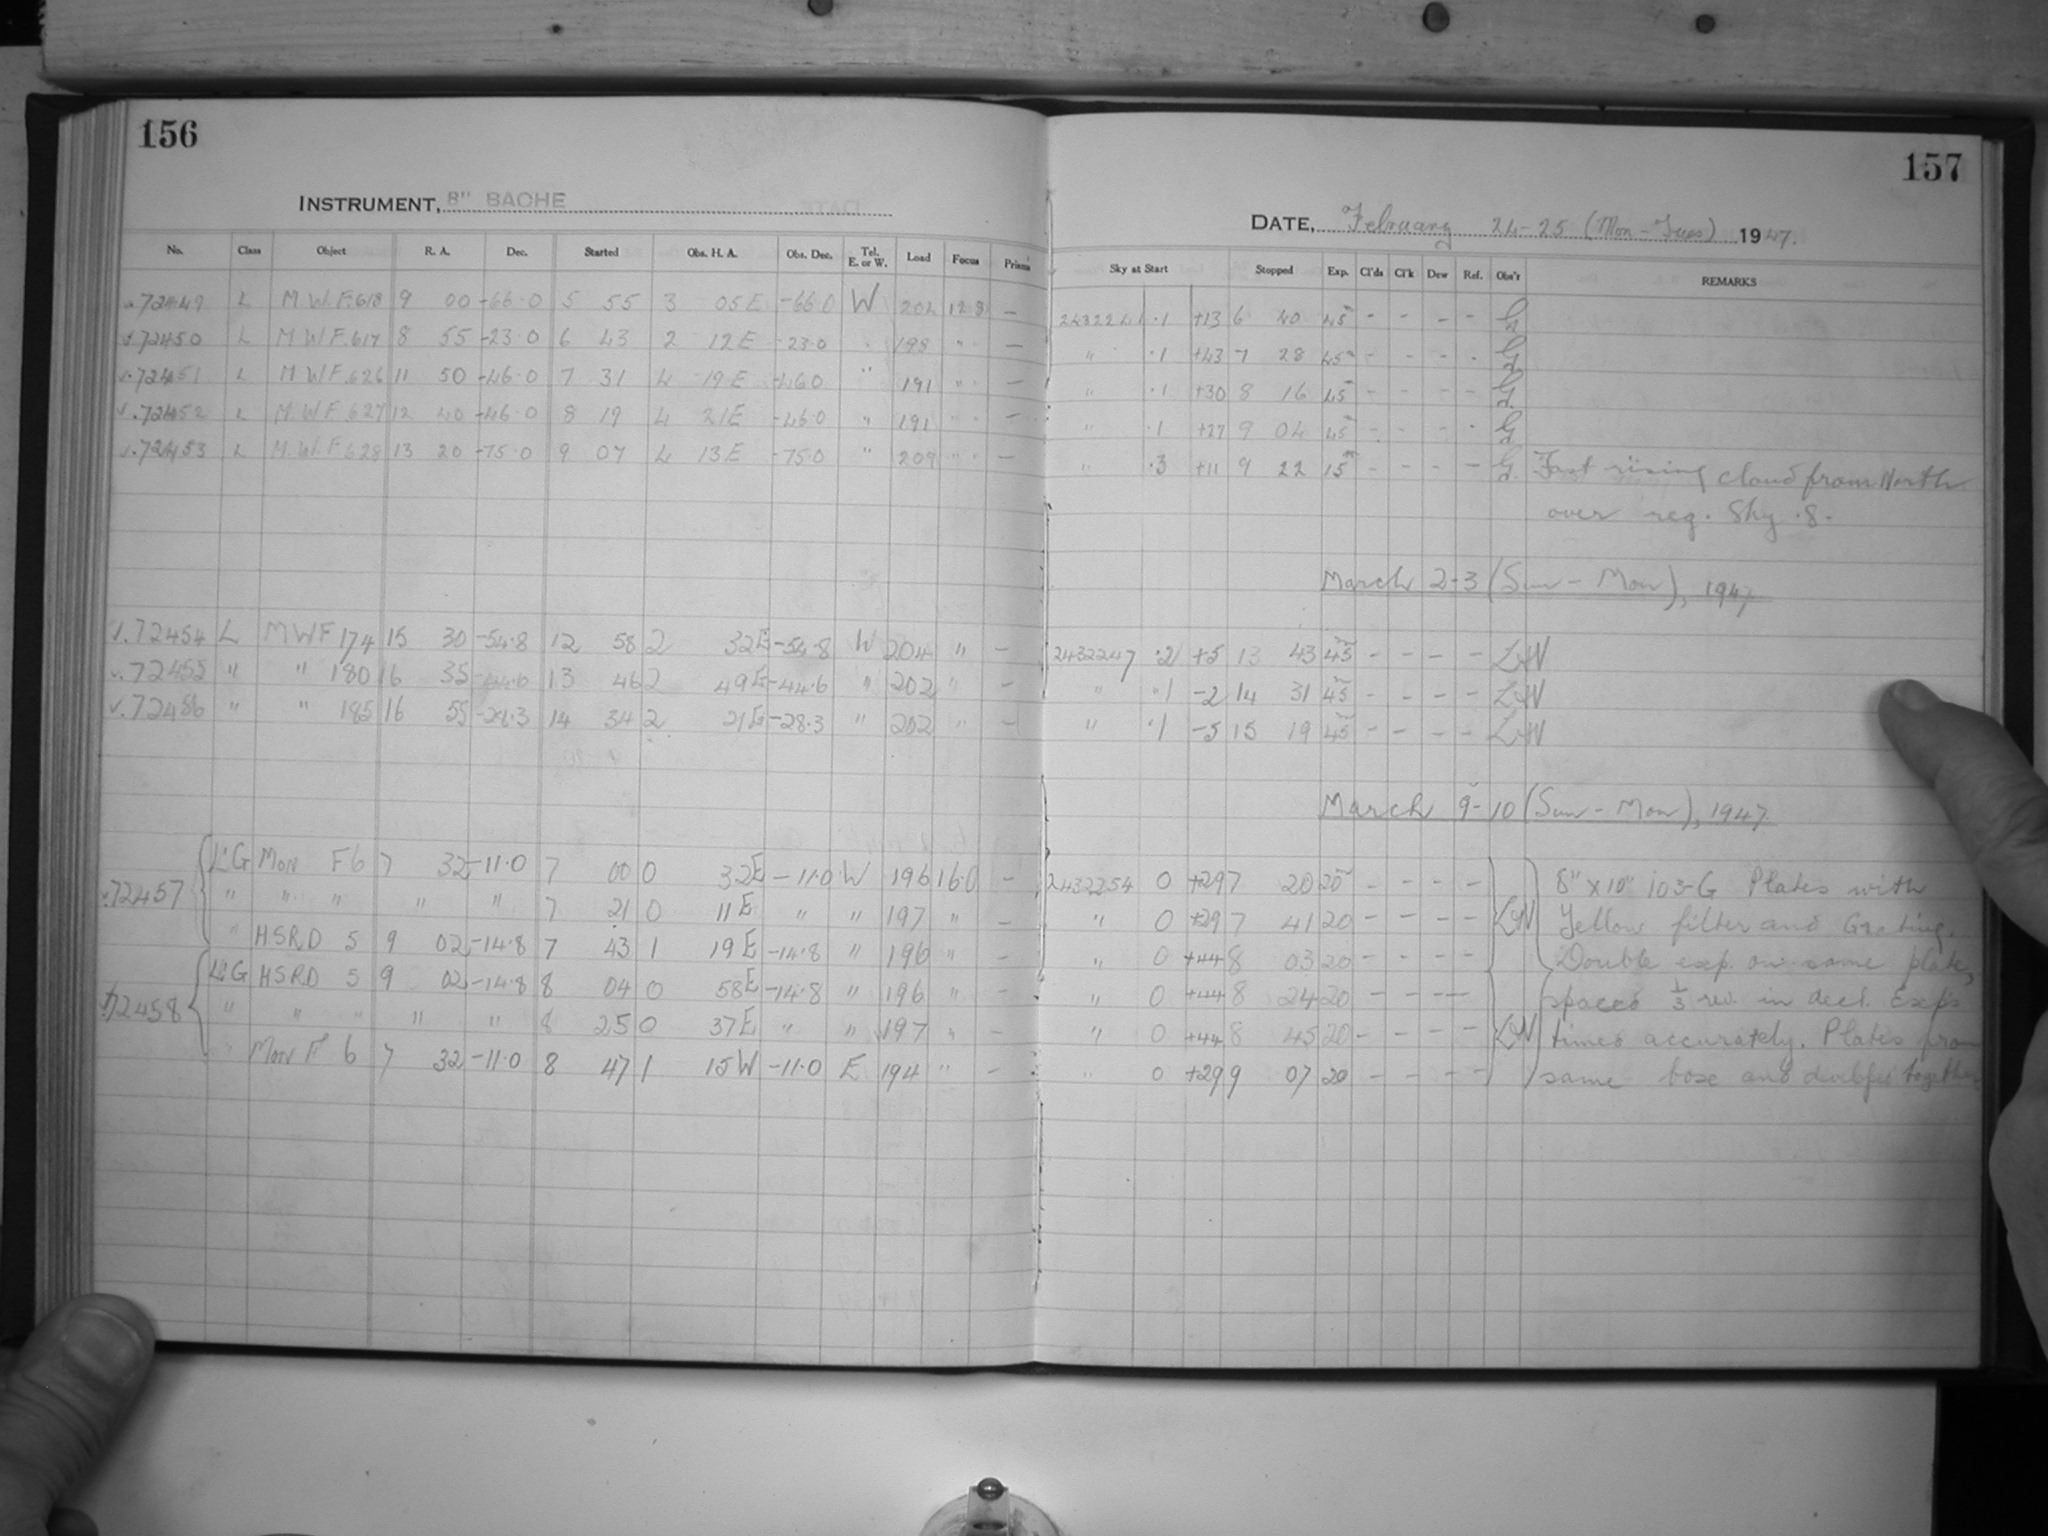 156
INSTRUMENT, 8" BACHE
No. Class Object R. A. Dec. Started Obs. H. A. Obs. Dec. Tel. E. or W. Load Focus Prisms
72449 L M.W.F. 618 9 00 -66.0 5 55 3 05 E -66.0 W 202 12.8 -
v.72450 L M.W.F. 617 8 55 -23.0 6 43 2 12 E -23.0 " 195 " -
v.72451 L M.W.F. 626 11 50 -46.0 7 31 4 19 E -46.0 " 191 " -
v.72452 L M.W.F. 627 12 40 -46.0 8 19 4 21 E -46.0 " 191 " -
v.72453 L M.W.F. 628 13 20 -75.0 9 07 4 13 E -75.0 " 209 " -
v.72454 L MWF 174 15 30 -54.8 12 58 2 32 E -54.8 W 204 " -
v.72455 " " 180 16 35 -44.6 13 46 2 49 E -44.6 " 202 " -
v.72456 " " 185 16 55 -28.3 14 34 2 21 E -28.3 " 202 " -
v.72457 L'G Mon F6 7 32 -11.0 7 00 0 32 E -11.0 W 196 16.0 -
" " " " " 7 21 0 11 E " " 197 " -
" HSRD 5 9 02 -14.8 7 43 1 19 E -14.8 " 196 " -
72458 L'G HSRD 5 9 02 -14.8 8 04 0 58 E -14.8 " 196 " -
" " " " " 8 25 0 37 E " " 197 " -
" Mon F 6 7 32 -11.0 8 47 1 15 W -11.0 E 194 " -
157
DATE, February 24-25 (Mon-Tues) 1947.
Sky at Start Stopped Exp. Cl'ds Cl'k Dew Ref. Obs'r REMARKS
2432241 .1 +13 6 40 45 - - - - G.
" .1 +43 7 28 45 - - - - G.
" .1 +30 8 16 45 - - - - G.
" .1 +27 9 04 45 - - - - G.
" .3 +11 9 22 15 - - - - G. Fast rising cloud from North
over reg. Sky .8.
March 2-3 (Sun-Mon), 1947
2432247 .2 +5 13 43 45 - - - - LW
" .1 -2 14 31 45 - - - - LW
" .1 -5 15 19 45 - - - - LW
March 9-10 (Sun-Mon), 1947.
2432254 0 +29 7 20 20 - - - - 8" x 10" 103-G Plates with
" 0 +29 7 41 20 - - - - LW Yellow filter and Grating.
" 0 +44 8 03 20 - - - - Double exp. on same plate,
" 0 +44 8 24 20 - - - - spaced 1/3 rev. in decl. Exps
" 0 +44 8 45 20 - - - - LW times accurately. Plates from
" 0 +29 9 07 20 - - - - same box and together